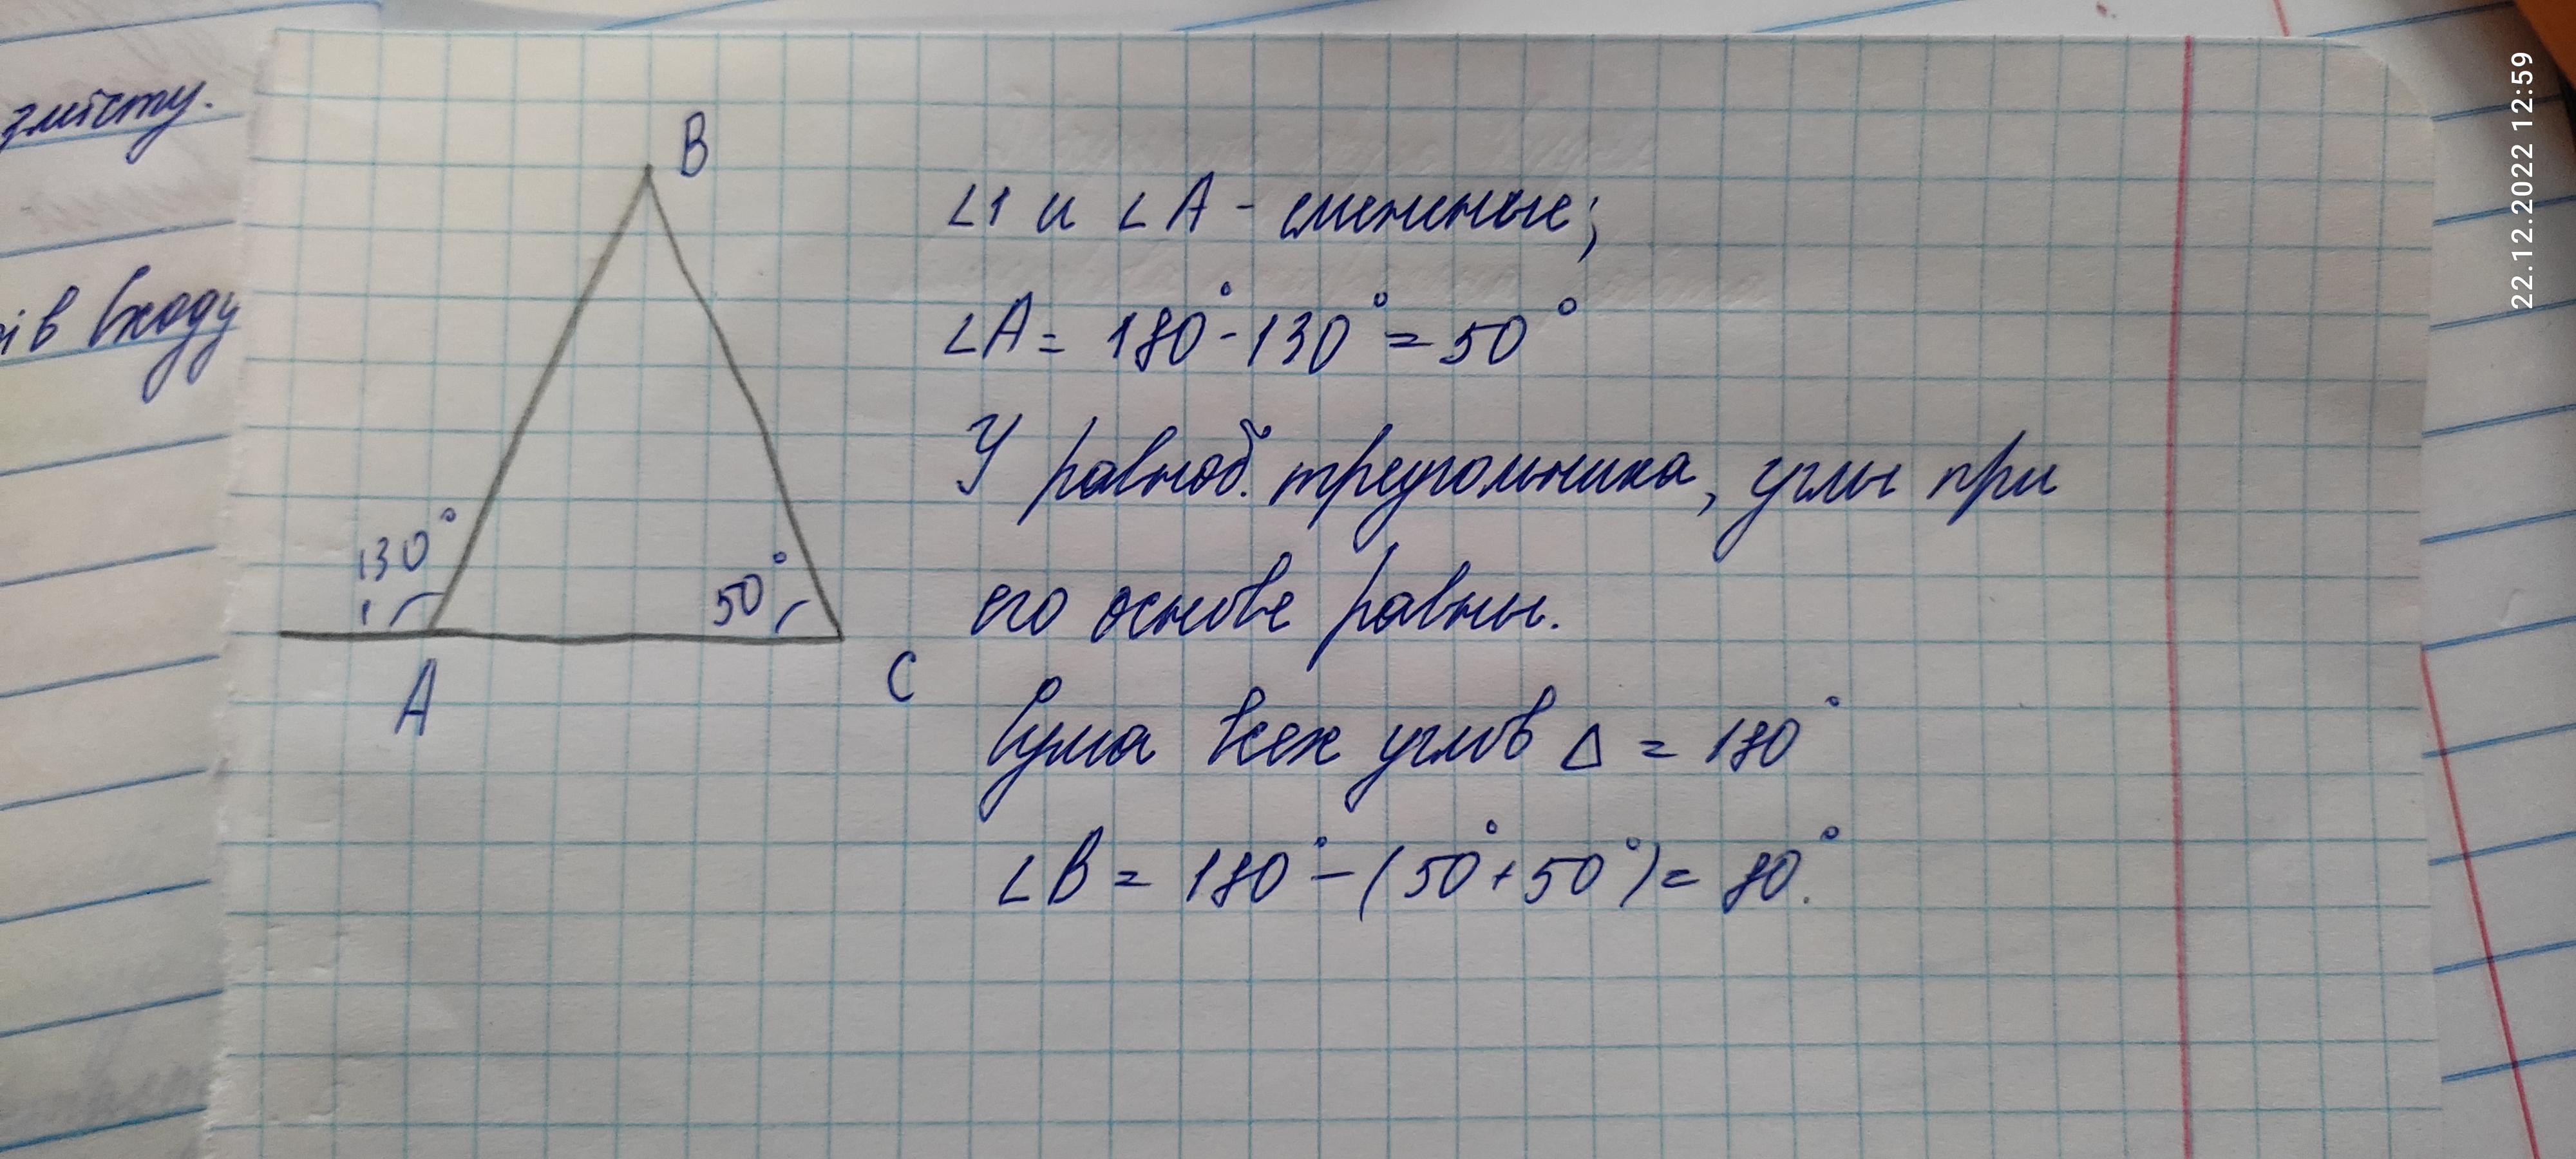 змісту.
ів входу
B
130°
1
50°
A
C
∠1 и ∠A - смежные;
∠A = 180° - 130° = 50°
У равноб. треугольника, углы при
его основе равны.
Сума всех углов Δ = 180°
∠B = 180° - (50° + 50°) = 80°.
22.12.2022 12:59